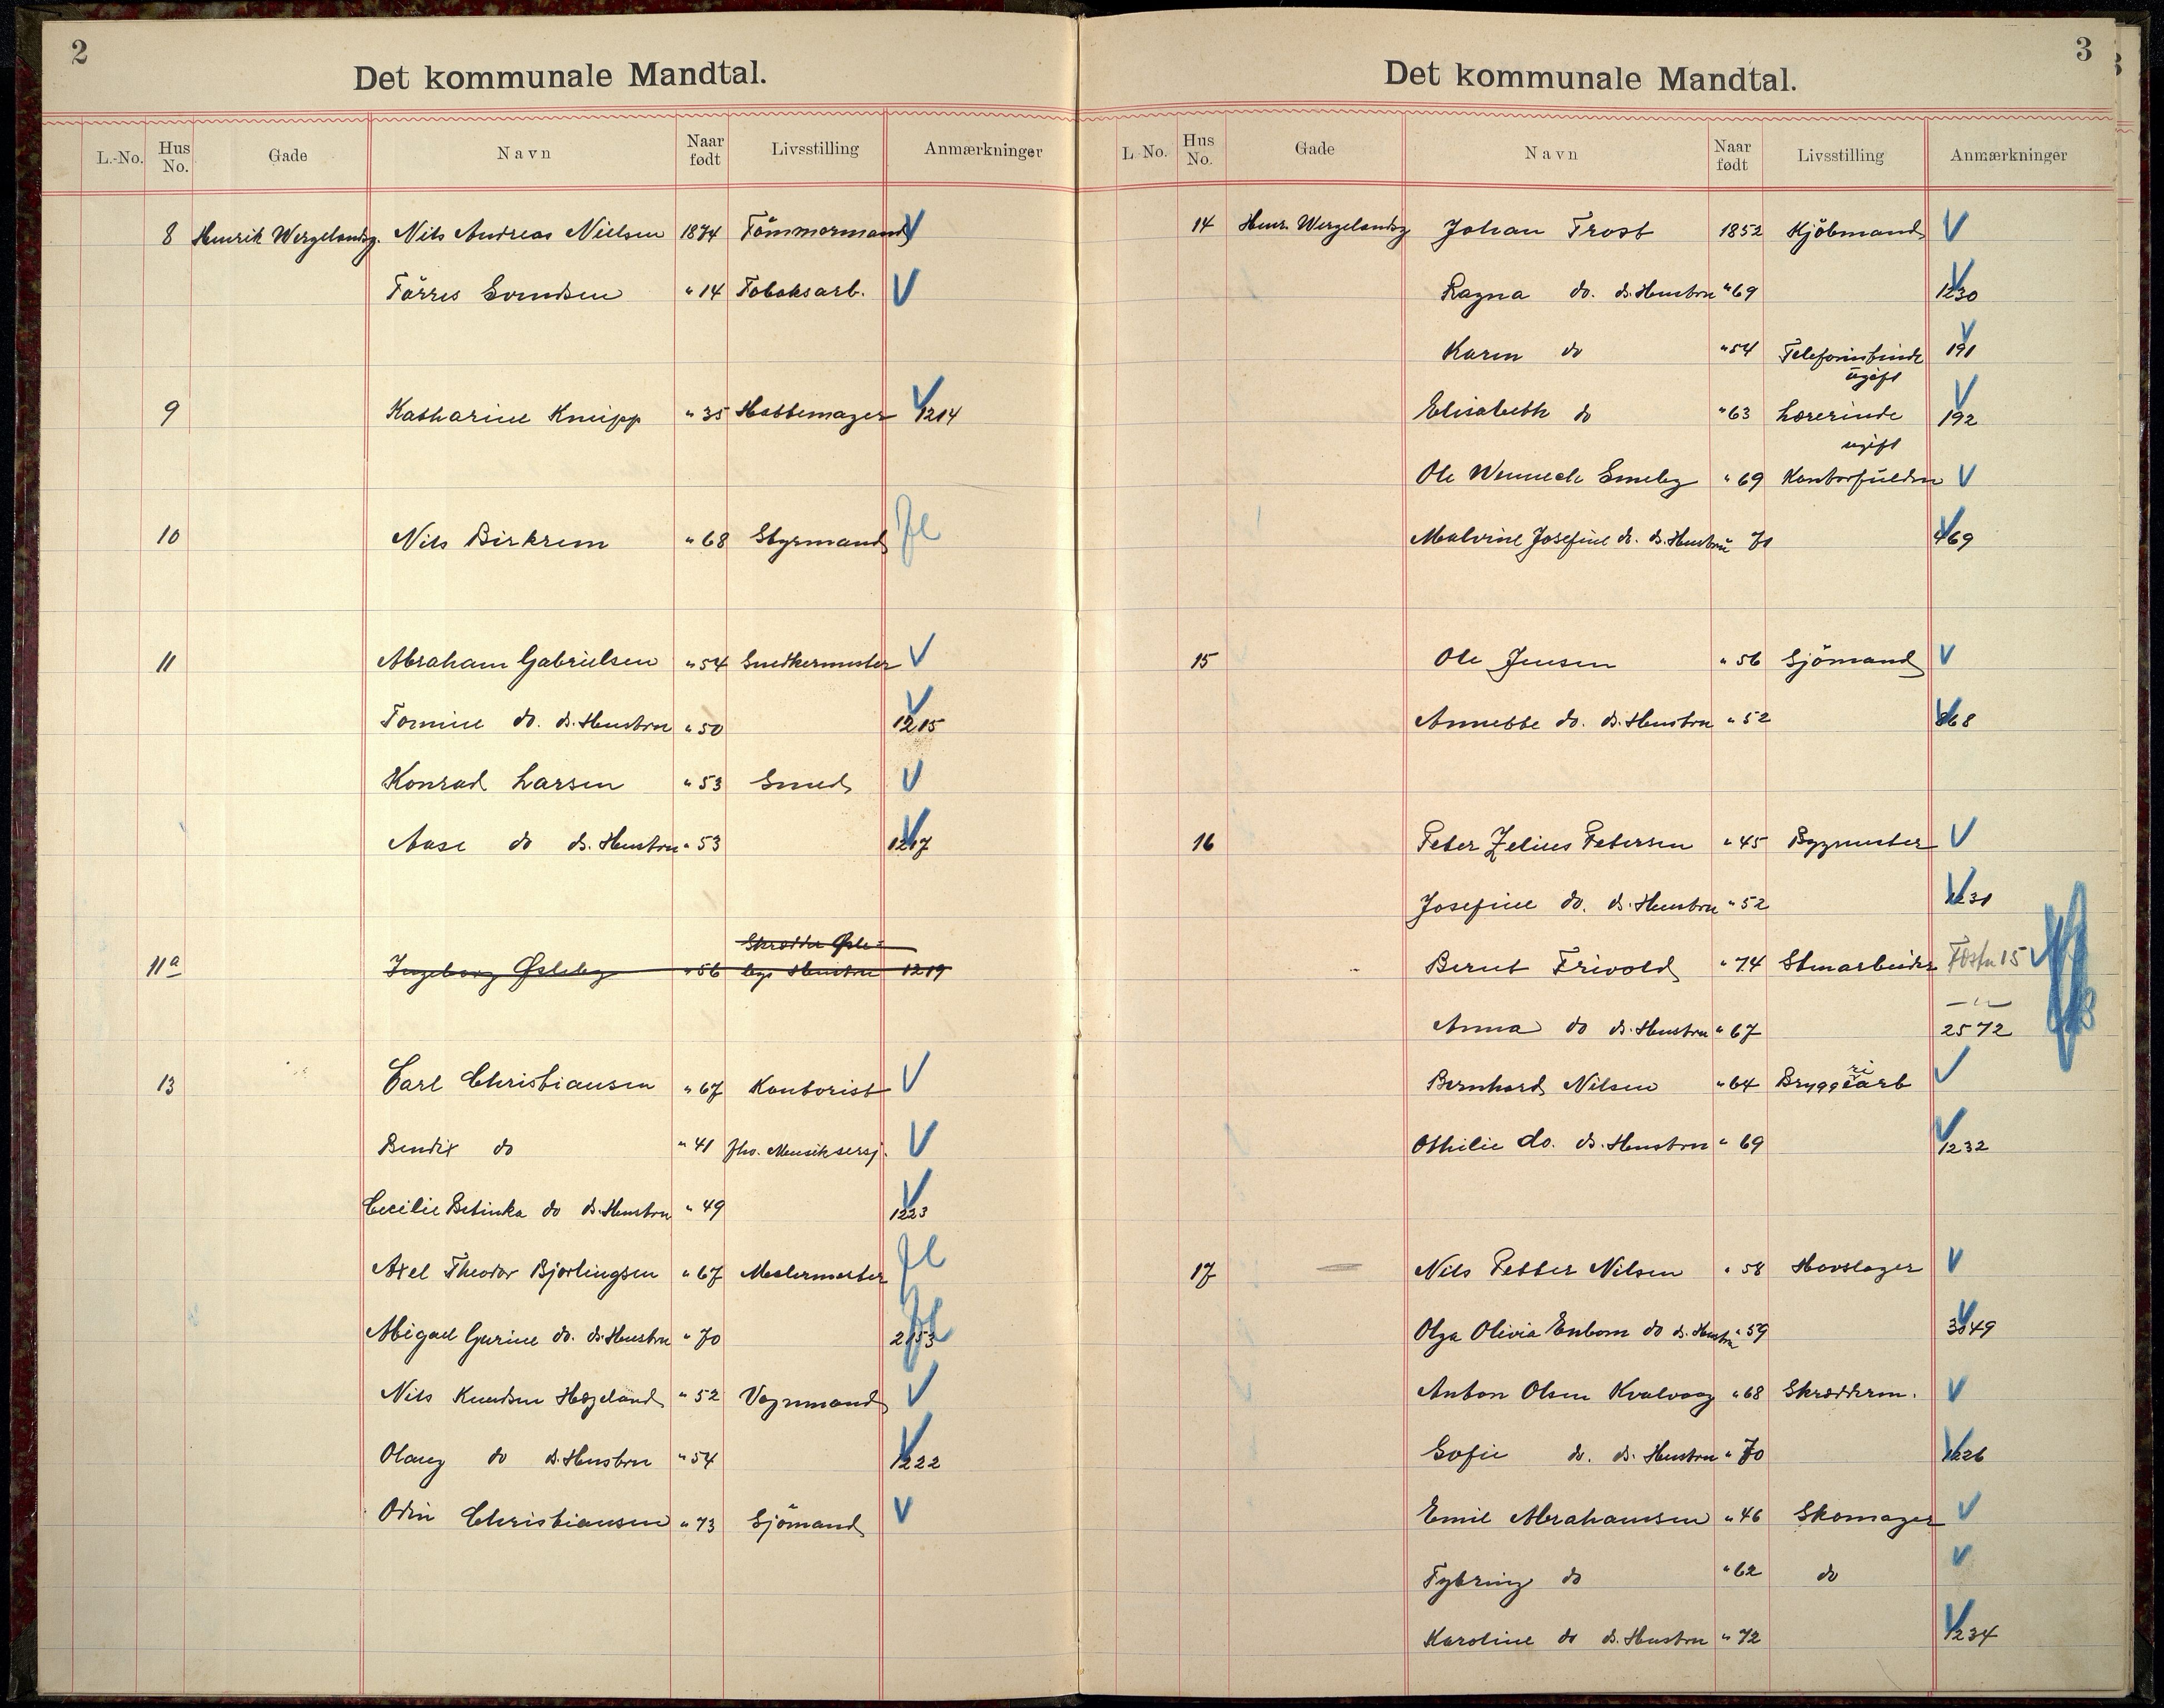 2
Det kommunale Mandtal.
L.-No. Hus No. Gade Navn Naar født Livsstilling Anmærkninger
8 Henrik Wergelandsg. Nils Andreas Nielsen 1874 Tömmermand V
Törres Svendsen " 14 Tobaksarb. V
9 Katharine Kneipp " 35 Hattemager V 1214
10 Nils Birkrem " 68 Styrmand fl
11 Abraham Gabrielsen " 54 Snedkermester V
Tomine do. ds. Hustru " 50 V 1215
Konrad Larsen " 53 Smed V
Aase do ds. Hustru " 53 V 1217
11a Ingeborg Øsleby " 56 Skrædder Øsle=
bys Hustru 1219
13 Carl Christiansen " 67 Kontorist V
Bendix do " 41 fhv. Musiksersj. V
Cecilie Betinka do ds. Hustru " 49 V 1223
Axel Theodor Bjorlingsen " 67 Malermester fl
Abigael Gurine do. ds. Hustru " 70 fl 2153
Nils Knudsen Hægeland " 52 Vognmand V
Olaug do ds. Hustru " 54 V 1222
Odin Christiansen " 73 Sjömand V
3
Det kommunale Mandtal.
L.-No. Hus No. Gade Navn Naar født Livsstilling Anmærkninger
14 Henr. Wergelandsg Johan Trost 1852 Kjöbmand V
Ragna do. ds. Hustru " 69 V 1230
Karen do " 54 Telefonistinde V 191
ugift
Elisabeth do " 63 Lærerinde V 192
ugift
Ole Wenneck Smeby " 69 Kontorfuldm V
Malvine Josefine do. ds. Hustru 70 V 469
15 Ole Jensen " 56 Sjömand V
Annette do. ds. Hustru " 52 V 868
16 Peter Zelius Petersen " 45 Bygmester V
Josefine do. ds. Hustru " 52 V 1231
Bernt Frivold " 74 Stenarbeider 15 V
Anna do ds. Hustru " 67 — " —
2572
Bernhard Nilsen " 64 Bryggeriarb V
Othilie do. ds. Hustru " 69 V 1232
17 Nils Petter Nilsen " 58 Hovslager V
Olga Olivia Enbom do ds. Hustru " 59 V 3049
Anton Olsen Kvalvaag " 68 Skrædderm. V
Sofie do. ds. Hustru " 70 V 1226
Emil Abrahamsen " 46 Skomager V
Tybring do " 62 do V
Karoline do ds. Hustru " 72 V 1234